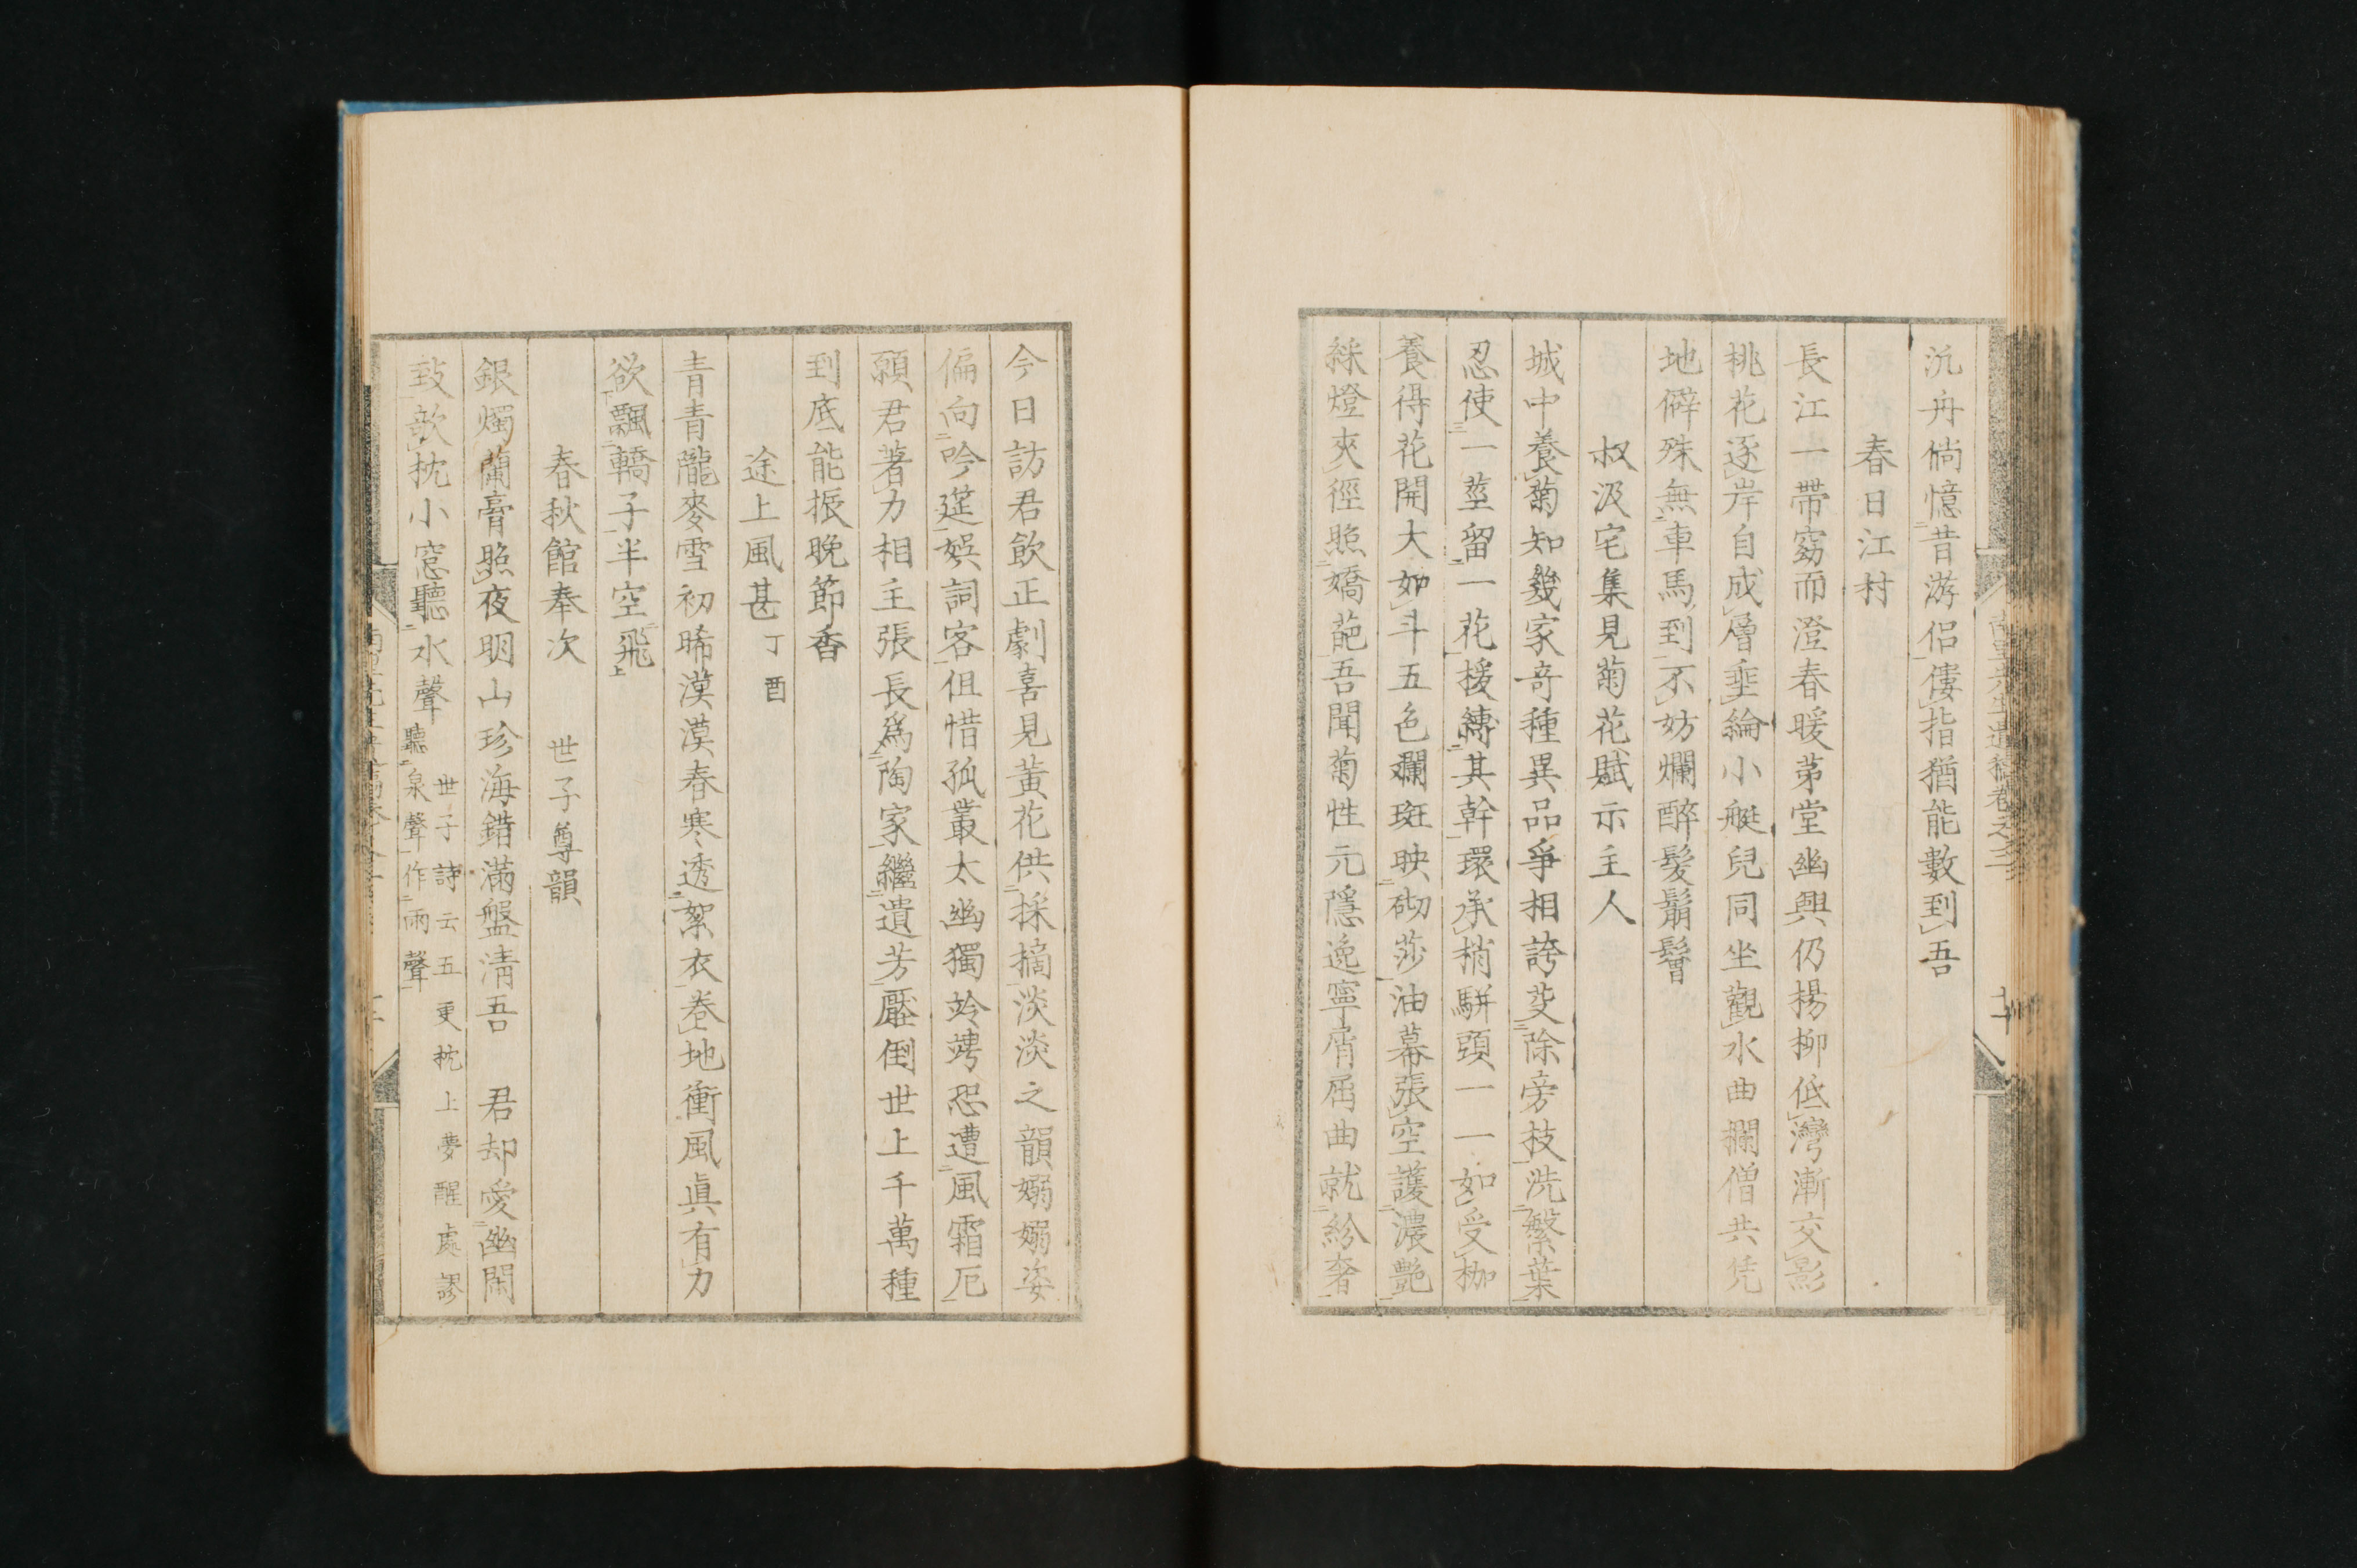 汎舟倘憶昔游侶僂指猶能數到吾
春日江村
長江一帶窈而澄春暖茅堂幽興仍楊柳低灣漸交影
桃花逐岸自成層垂綸小艇兒同坐觀水曲欄僧共凭
地僻殊無車馬到不妨爛醉髮鬅鬙
叔汲宅集見菊花賦示主人
城中養菊知幾家奇種異品爭相誇芟除旁枝洗繁葉
忍使一莖留一花援縛其幹環承梢駢頭一一如受枷
養得花開大如斗五色斕斑映砌莎油幕張空護濃艷
綵燈夾徑照嬌葩吾聞菊性元隱逸寧屑屈曲就紛奢
今日訪君飲正劇喜見黃花供採摘淡淡之韻嫋嫋姿
偏向吟筵娛詞客但惜孤叢太幽獨竛竮恐遭風霜厄
願君著力相主張長爲陶家繼遺芳壓倒世上千萬種
到底能振晚節香
途上風甚 丁酉
青青隴麥雪初晞漠漠春寒透絮衣卷地衝風眞有力
欲飄轎子半空飛
春秋館奉次 世子尊韻
銀燭蘭膏照夜明山珍海錯滿盤淸吾 君却愛幽閑
致欹枕小窓聽水聲
世子詩云五更枕上夢醒處謬
聽泉聲作雨聲